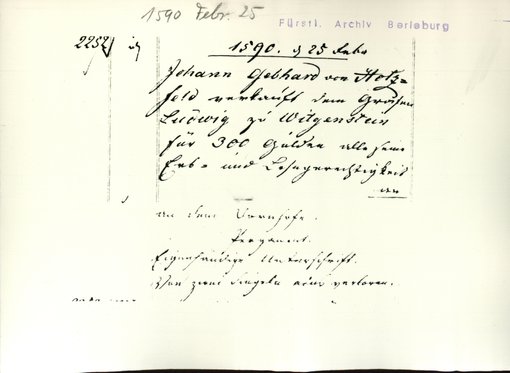 1590 Febr. 25
Fürstl. Archiv Berleburg
2252
1590. d 25 Febr
Johann Gebhard von Hatz=
feld verkauft dem Grafen
Ludwig zu Witgenstein
für 300 Gulden alle seine
Erb- und Lehngerechtigkeit
an dem Vornhofe.
Pergament.
Eigenhändige Unterschrift.
Von zwei Siegeln eins verloren.